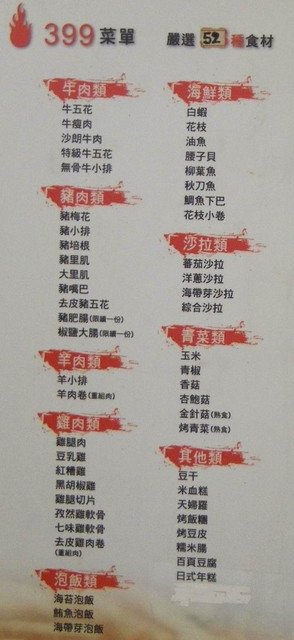 399菜單
嚴選52種食材
牛肉類
牛五花
牛瘦肉
沙朗牛肉
特級牛五花
無骨牛小排
豬肉類
豬梅花
豬小排
豬培根
豬里肌
大里肌
豬嘴巴
去皮豬五花
豬肥腸(限續一份)
椒鹽大腸(限續一份)
羊肉類
羊小排
羊肉卷(重組肉)
雞肉類
雞腿肉
豆乳雞
紅糟雞
黑胡椒雞
雞腿切片
孜然雞軟骨
七味雞軟骨
去皮雞肉卷
(重組肉)
泡飯類
海苔泡飯
鮪魚泡飯
海帶芽泡飯
海鮮類
白蝦
花枝
油魚
腰子貝
柳葉魚
秋刀魚
鯛魚下巴
花枝小卷
沙拉類
蕃茄沙拉
洋蔥沙拉
海帶芽沙拉
綜合沙拉
青菜類
玉米
青椒
香菇
杏鮑菇
金針菇(熟食)
烤青菜(熟食)
其他類
豆干
米血糕
天婦羅
烤飯糰
烤豆皮
糯米腸
百頁豆腐
日式年糕